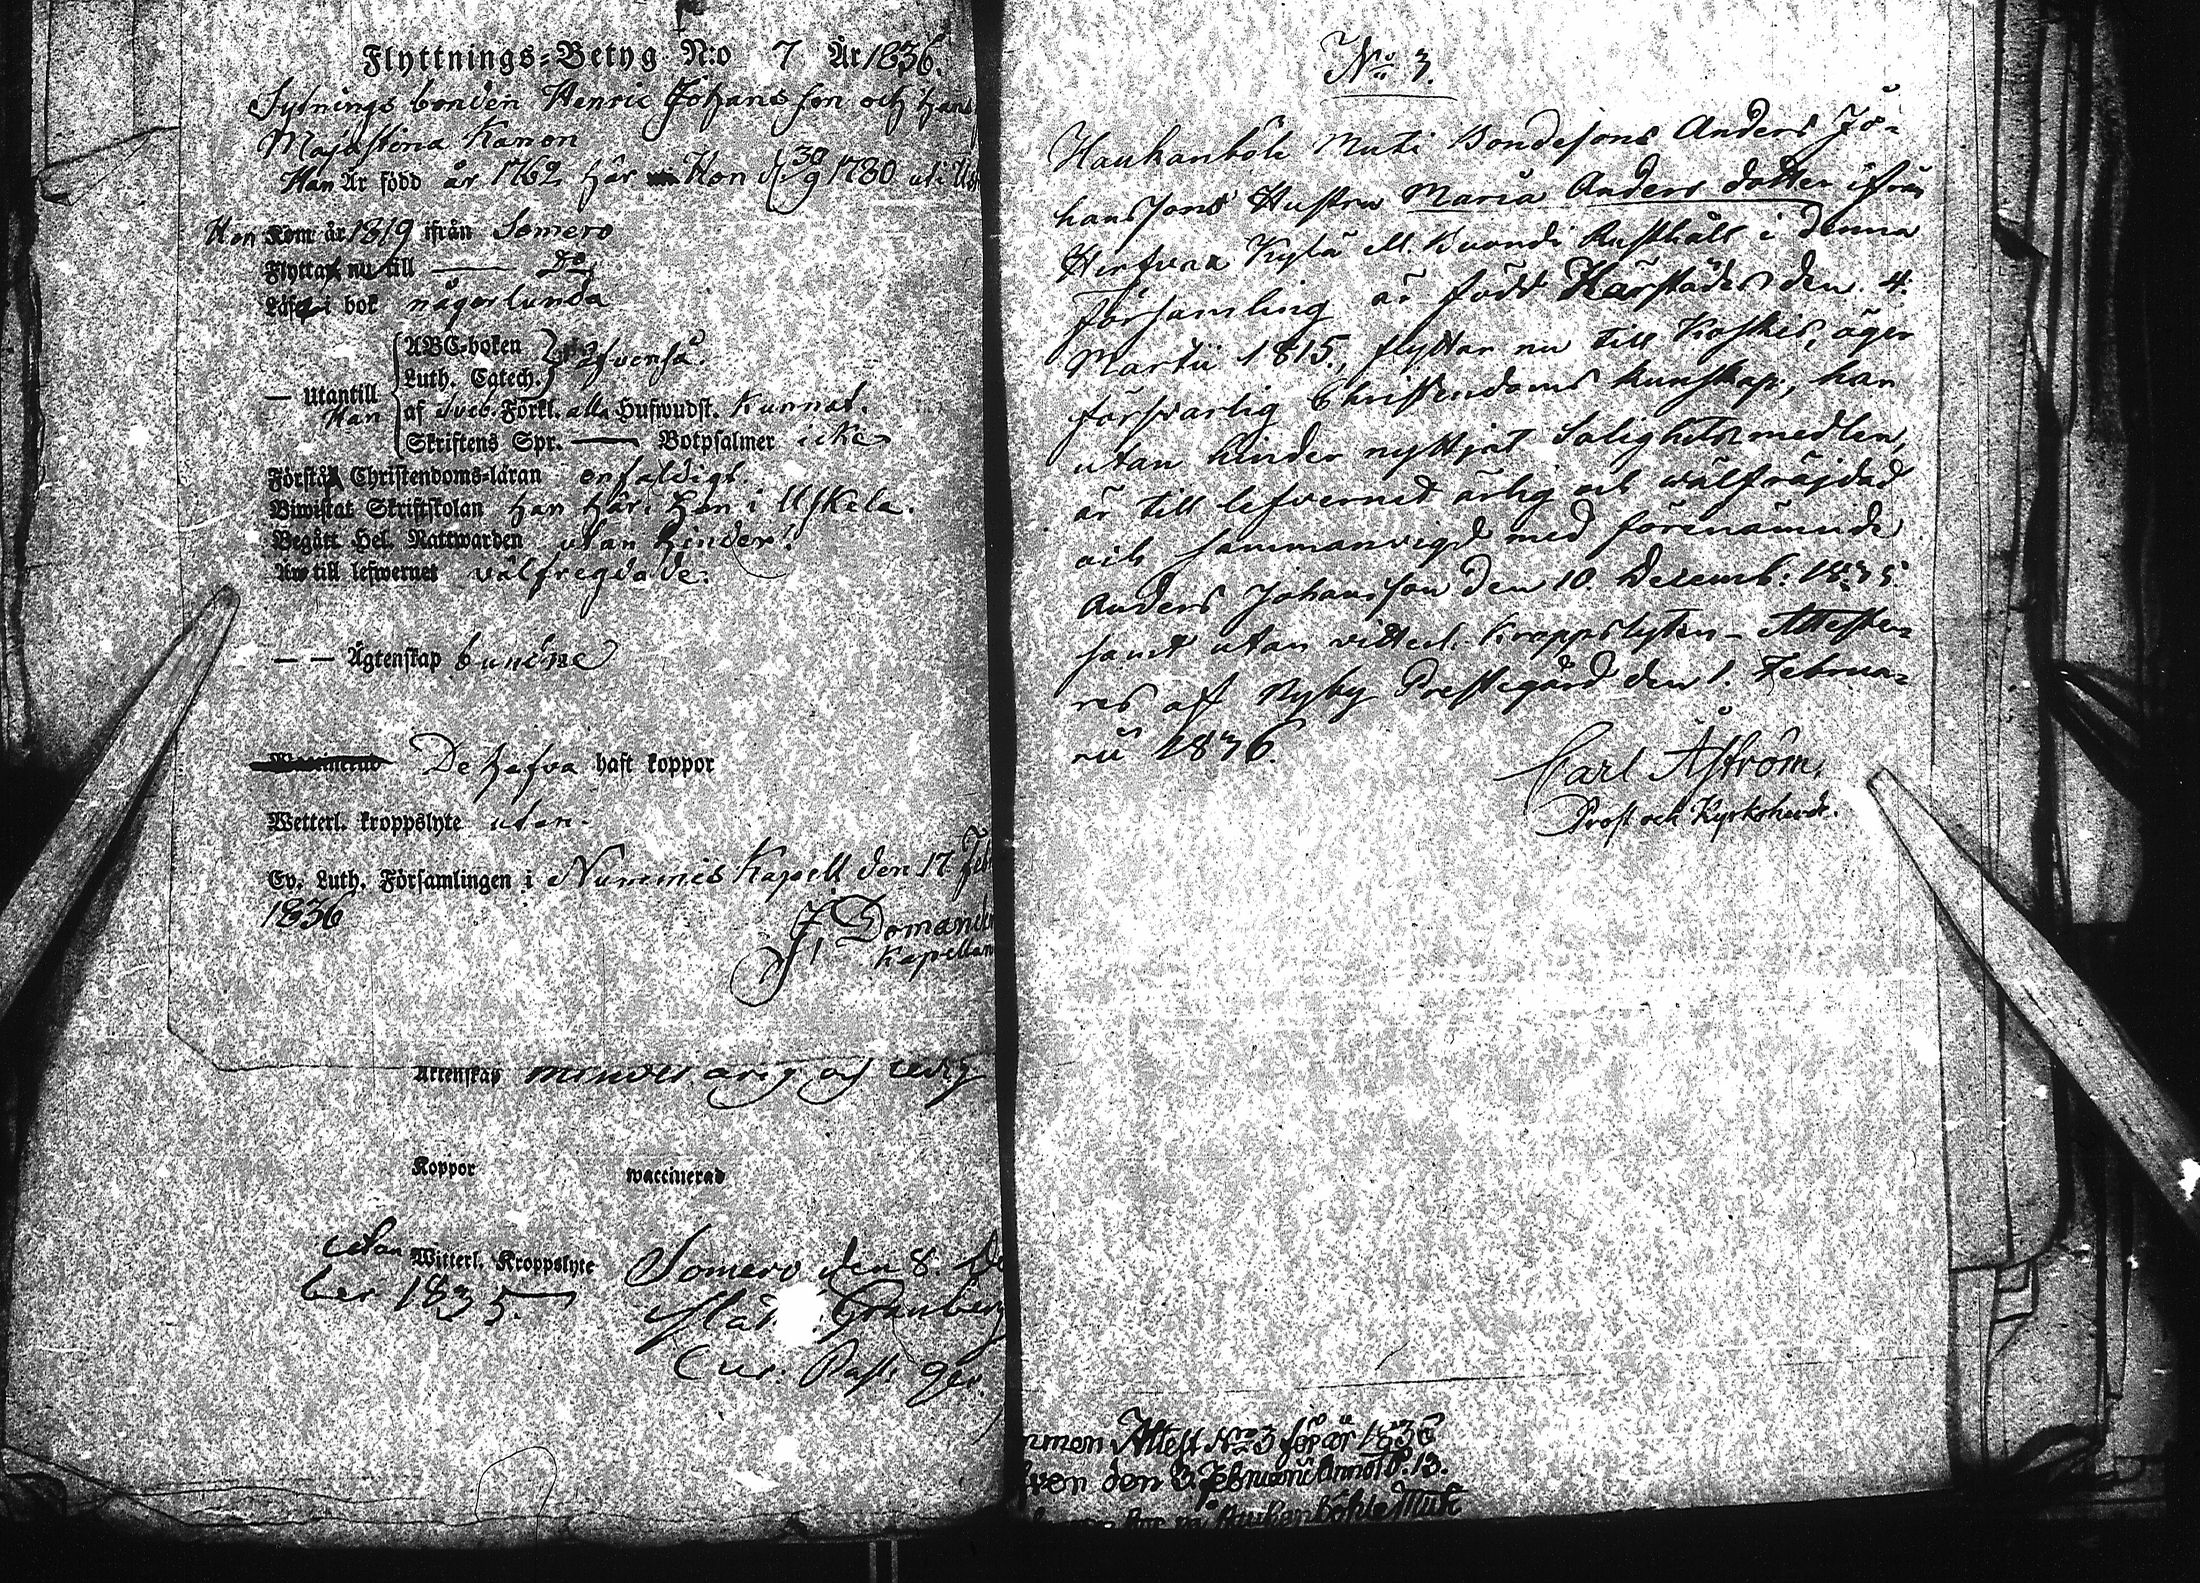 Flyttnings-Betyg N:o 7 År 1836.
Sytnings bonden Henric Johansson och hans
Majastina Kanon
Han Är född år 1762 här Hon d. 30/9 1780 uti Usk
Hon Kom år 1819 ifrån Somero
Flytta nu till —— Do
Läser i bok någorlunda
— Utantill
Han
ABC-boken
Luth. Catech.
af Sveb. Förkl. alla Hufwudst. Kunnat.
Skriftens Spr. —— Botpsalmer icke
Förstå Christendoms-läran enfaldigt.
Biwistat Skriftskolan han här, hon i Uskela.
Begått Hel. Nattwarden utan hinder.
Är till lefwernet välfregdade.
— — Ägtenskap bundne
De hafva haft koppor
Wetterl. kroppslyte utan.
Ev. Luth. Församlingen i Nummis Kapell den 17 Feb
1836
J. Doman
Kapellan
Äktenskap ledig
Koppor waccinerad
utan Witterl. Kroppslyte Somero den 8. De
ber 1835.
Granberg
Past:
No 3.
Haukanböle Muti Bondesons Anders Jo-
hanssons Hustru Maria Anders dotter ifrån
Kylä ell. Rusthåll i denna
Församling är född Härstädes den 4.
Martii 1815, flyttar nu till Koskis, äger
försvarlig Christendoms kunskap, har
utan hinder nyttjat Salighets medlen,
är till lefvernet ärlig och wälfräjdad
och sammanvigd med förenämnde
Anders Johansson den 10 Decemb: 1835
samt utan vitterl. kroppslyten - Atteste-
res af Nyby Prestegård den 1. Februa-
rii 1836.
Carl Åström,
Prost och Kyrkoherde.
mmen Attest No 3 för år 1836
ven den 3 Februarii 13.
Haukanböhle Muti